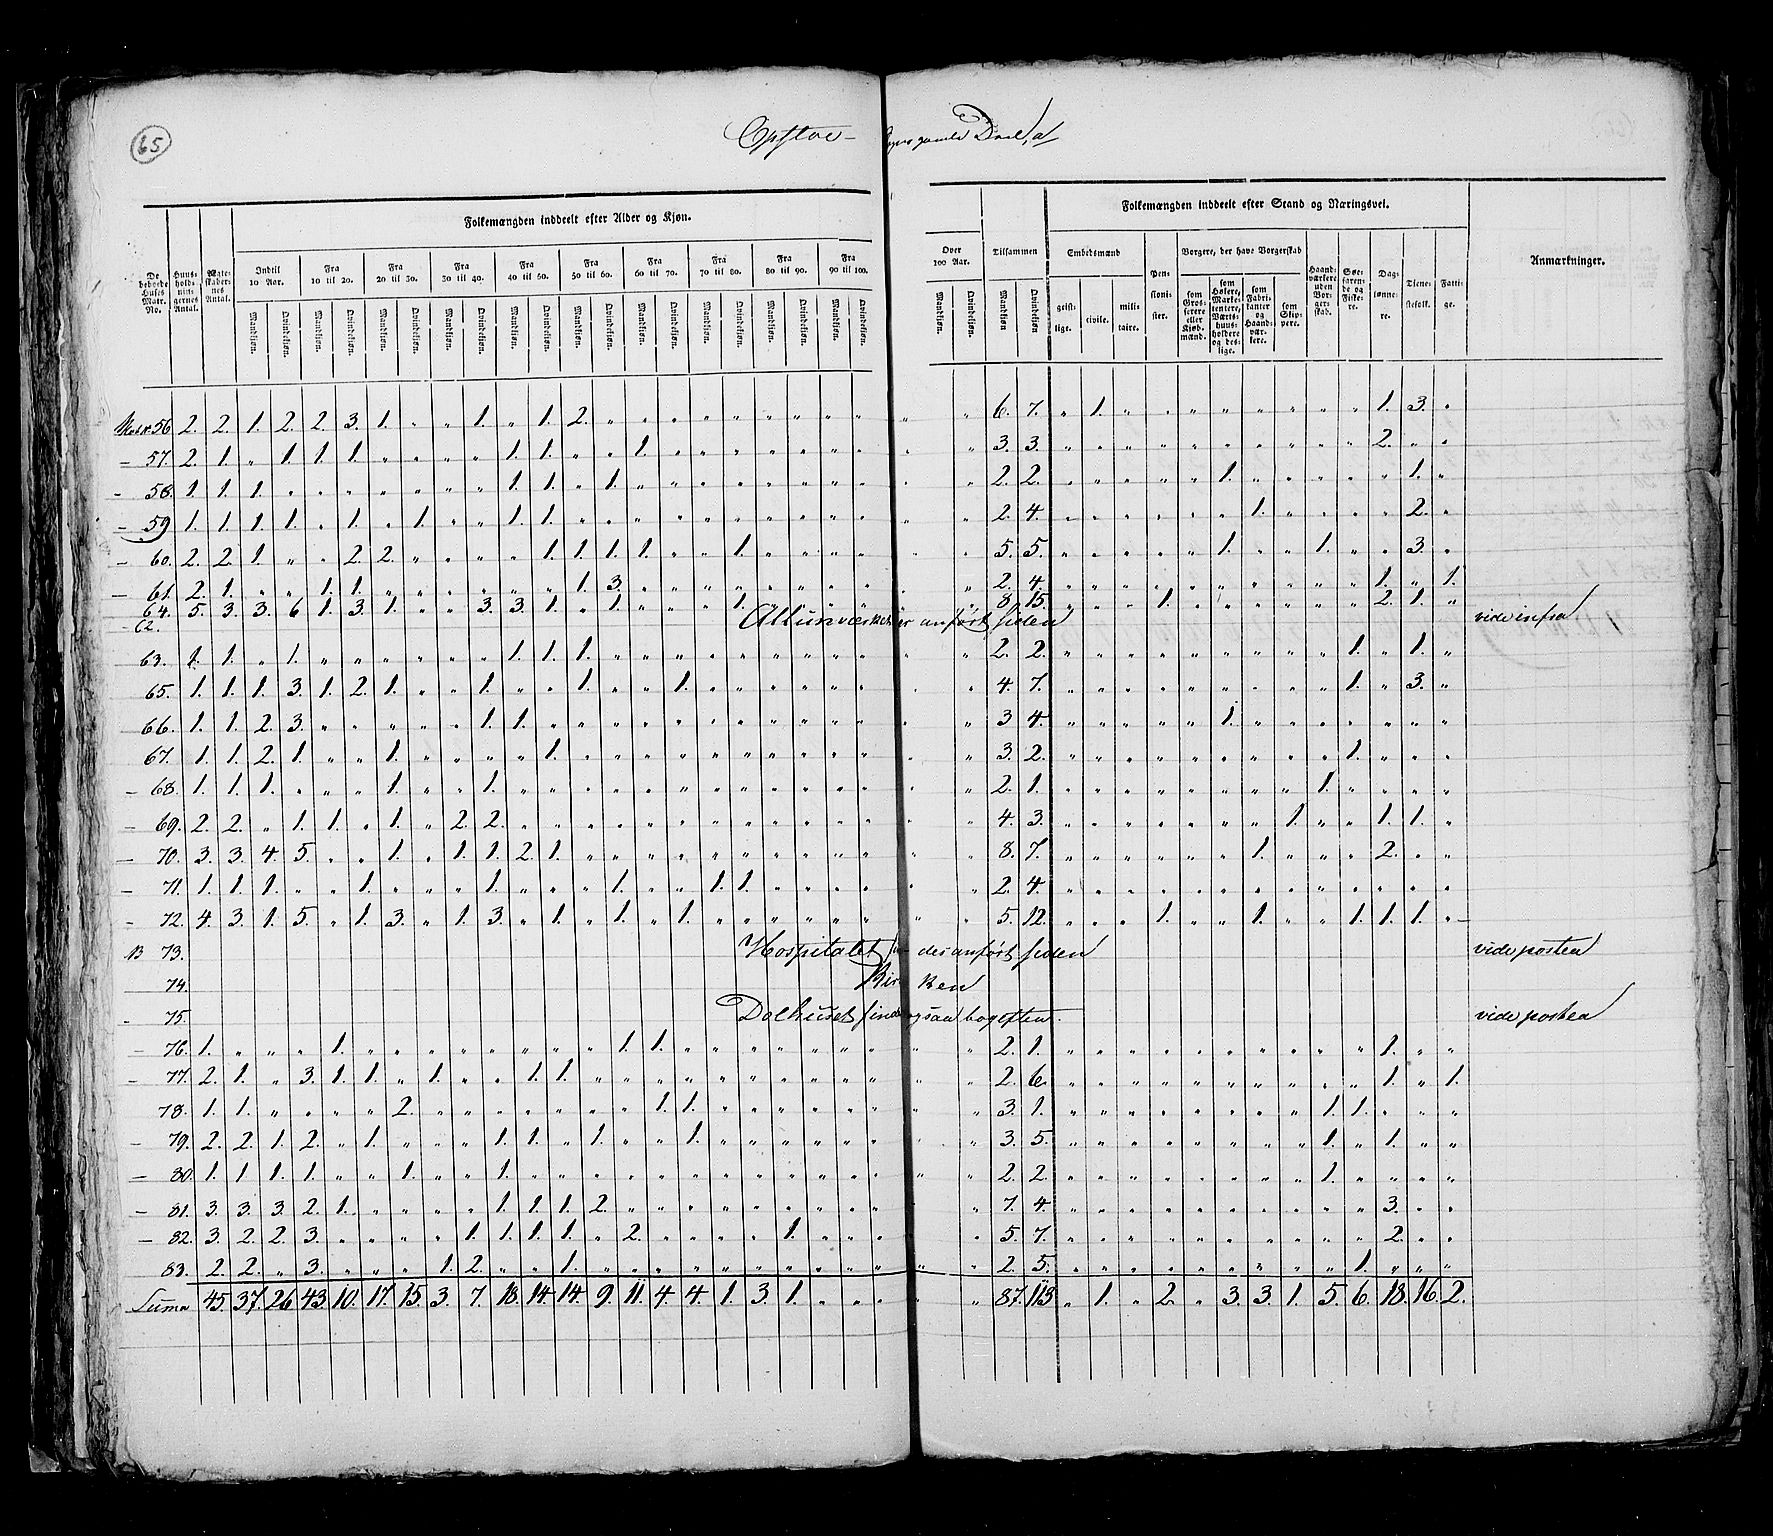 65
Opsloe- Byes gamle Deel, a
Folkemængden inddeelt efter Alder og Kjøn.
Folkemængden inddeelt efter Stand og Næringsvei.
De beboede Huses Matr. No. Huusholdningernes Antal. Ægteskabernes Antal. Indtil 10 Aar. Fra 10 til 20. Fra 20 til 30. Fra 30 til 40. Fra 40 til 50. Fra 50 til 60. Fra 60 til 70. Fra 70 til 80. Fra 80 til 90. Fra 90 til 100. Over 100 Aar. Tilsammen Embedsmænd Pensionister. Borgere, der have Borgerskab Haandværkere uden Borgerskab. Søefarende og Fiskere. Daglønnere. Tjenestefolk. Fattige. Anmærkninger.
Mandkjøn. Qvindekjøn. Mandkjøn. Qvindekjøn. Mandkjøn. Qvindekjøn. Mandkjøn. Qvindekjøn. Mandkjøn. Qvindekjøn. Mandkjøn. Qvindekjøn. Mandkjøn. Qvindekjøn. Mandkjøn. Qvindekjøn. Mandkjøn. Qvindekjøn. Mandkjøn. Qvindekjøn. Mandkjøn Qvindekjøn. Mandkjøn Qvindekjøn geistlige. civile. militaire. som Grosserere eller Kjøbmænd. som Høkere, Marketentere, Værtshuusholdere og deslige. som Fabrikanter og Haandværkere. som Skippere.
56 2. 2. 1. 2. 2. 3. 1. " " 1. " 1. 2. " " " " " " " " " " " 6. 7. " 1. " " " " " " " " 1. 3. "
- 57. 2. 1. " 1. 1. 1. " " " " 1. 1. " " 1. " " " " " " " " " 3. 3. " " " " " " " " " " 2. " "
- 58. 1. 1. 1. " " " " " " " 1. 1. " 1. " " " " " " " " " " 2. 2. " " " " " 1. " " " " " 1. "
- 59 1. 1. 1. 1. " 1. " 1. " " 1. 1. " " " " " " " " " " " " 2. 4. " " " " " " 1. " " " " 2. "
- 60. 2. 2. 1. " " 2. 2. " " " " 1. 1. 1. 1. " " 1. " " " " " " 5. 5. " " " " " 1. " " 1. " " 3. "
- 61. 2. 1. " " 1. 1. " " " " " " 1. 3. " " " " " " " " " " 2. 4. " " " " " " " " " " 1. " 1.
64. 5. 3. 3. 6 1. 3. 1. " " 3. 3. 1. " 1. " " " 1. " " " " " " 8. 15. " " " 1. " " " " " " 2. 1. "
- 62. Allunværket er anført siden vide infra
63. 1. 1. " 1. " " " " " " 1. 1. 1. " " " " " " " " " " " 2. 2. " " " " " " " " " 1. " 1. "
65. 1. 1. 1. 3. 1. 2. 1. " " 1. " " 1. " " 1. " " " " " " " " 4. 7. " " " " " " " " " 1. " 3. "
66. 1. 1. 2. 3. " " " " " 1. 1. " " " " " " " " " " " " " 3 4. " " " " " 1. " " " " " " "
67. 1. 1. 2. 1. " " 1. " " " " 1. " " " " " " " " " " " " 3. 2. " " " " " " " " " 1. " " "
- 68. 1. 1. 1. " " " 1. " " 1. " " " " " " " " " " " " " " 2. 1. " " " " " " " " 1. " " " "
- 69. 2. 2. " 1. 1. " 1. " 2. 2. " " " " " " " " " " " " " " 4. 3. " " " " " " " 1. " " 1. 1. "
- 70. 3. 3. 4. 5. " " 1. " 1. 1. 2. 1. " " " " " " " " " " " " 8. 7. " " " " " " 1. " " " 2. " "
- 71. 1. 1. 1. " " 1. " " " 1. " " " 1. " " 1. 1. " " " " " " 2. 4. " " " " " " " " " " " " "
- 72. 4. 3. 1. 5. " 1. 3. " 1. 3. " 1. " 1. " 1. " " " " " " " " 5. 12. " " " 1. " " 1. " " 1. 1. 1. "
73. Hospitalet findes anført siden vide postea
74. Kirken
- 75. Dolhuset findes ogsaa bagefter. vide postea
- 76. 1. " " " 1. " " " " " " " " 1. 1. " " " " " " " " " 2. 1. " " " " " " " " " " 1. " "
- 77. 2. 1. " 3. 1. 1. " 1. " " 1. 1. " " " " " " " " " " " " 2. 6. " " " " " " " " " " 1. " 1.
78. 1. 1. " " " " 2. " " " " " " " 1. 1. " " " " " " " " 3. 1. " " " " " " " " 1. 1. " " "
- 79. 2. 2. 1. 2. " 1. " " " 1. 1. " 1. " " 1. " " " " " " " " 3. 5. " " " " " " " " 1. " 1. " "
- 80. 1. 1 1. 1. " " 1. " " 1. " " " " " " " " " " " " " " 2. 2. " " " " " " " " 1. " " " "
- 81. 3. 3. 3. 2. 1. " " " " 1. 1. 1. 2. " " " " " " " " " " " 7. 4. " " " " " " " " " " 3. " "
- 82. 3. 2. 2. 3. " " " " 1. 1. 1. 1. " 2. " " " " 1. " " " " " 5. 7. " " " " " " " " " " 2. " "
83. 2. 2. " 3. " " " 1. 2. " " 1. " " " " " " " " " " " " 2. 5. " " " " " " " " " 1. " " "
Suma 45. 37. 26 43. 10. 17. 15. 3. 7. 18. 14. 14. 9. 11. 4. 4. 1. 3. 1. " " " " " 87. 113 " 1. " 2. " 3. 3. 1. 5. 6. 18. 16. 2.